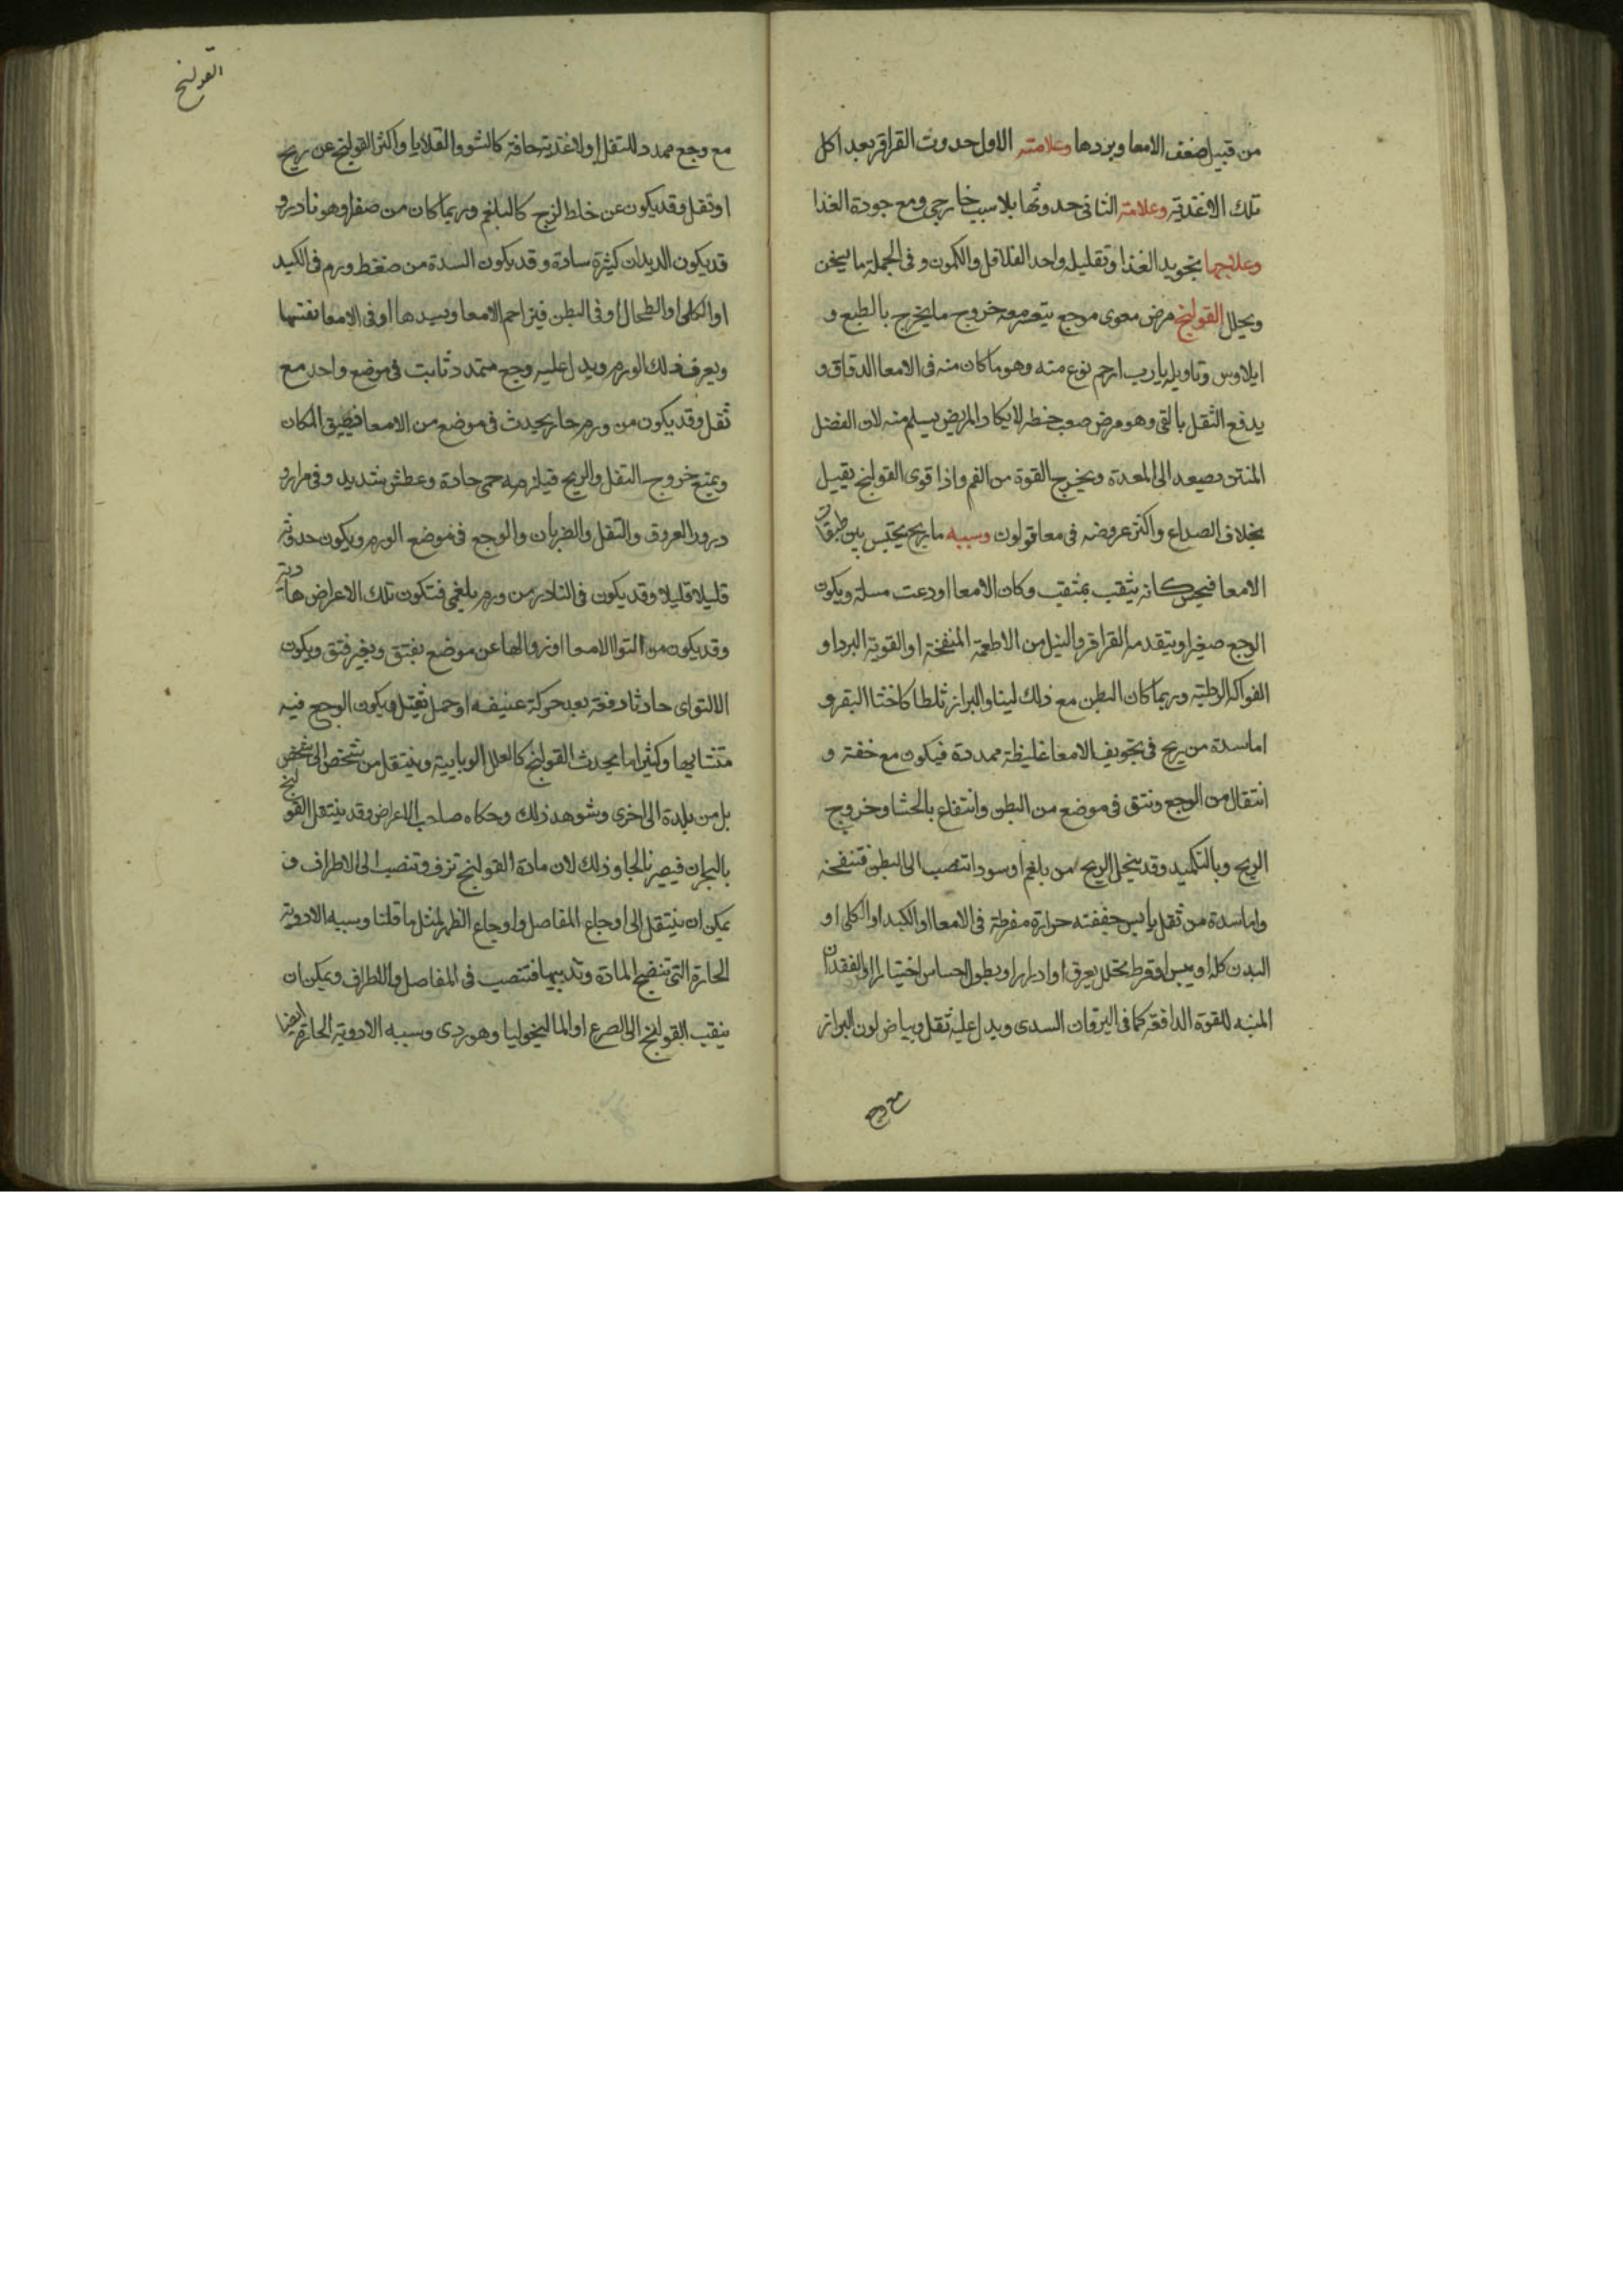 من قبيل ضعف الامعا وبردها وعلامته الاول حدوث القراقر بعد اكل
تلك الاغذية وعلامته الثانى حدوثها بلا سبب خارجى ومع جودة الغذا
وعلاجها بتجويد الغذا وتقليله واحد الفلافل والكمون وفى الجملة ما يسخن
ويحلل القولنج مرض معوى موجع يتعسر معه خروج ما يخرج بالطبع و
ايلاوس وتاويله يارب ارحم نوع منه وهو ما كان منه فى الامعا الدقاق و
يدفع الثقل بالقى وهو مرض صعب خطر لا يكاد المريض يسلم منه لان الفضل
المنتن يصعد الى المعدة ويخرج القوة من الفم واذا قوى القولنج يقيل
بخلاف الصداع واكثر عروضه فى معا قولون وسببه ما ريح يحتبس بين طبقات
الامعا فيحس كانه يثقب بمثقب وكان الامعا اودعت مسلة ويكون
الوجع صغيرا ويتقدمه القراقر والنيل من الاطعمة المنفخة او القوية البرد او
الفواكه الرطبة وربما كان البطن مع ذلك لينا والبراز ثلطا كاخثا البقر و
اما سدة من ريح فى تجويف الامعا غليظة ممددة فيكون مع خفة و
انتقال من الوجع ونتق فى موضع من البطن وانتفاع بالجشا وخروج
الريح وبالتكميد وقد ينحل الريح من بلغم او سودا تنصب الى البطن فتنفخه
واما سدة من ثقل يابس جففته حرارة مفرطة فى الامعا او الكبد او الكلى او
البدن كله او يبس او فرط تحلل بعرق او ادرار او بطول احتباس اختيارا او لفقدان
المنبه للقوة الدافعة كما فى اليرقان السدى ويدل عليه ثقل وبياض لون البراز
مع وجع
القولنج
مع وجع ممدد للثقل او لاغذية جافة كالشوو القلايا واكثر القولنج عن ريح
او ثقل وقد يكون عن خلط لزج كالبلغم وربما كان من صفرا وهو نادر و
قد يكون الديدان كثيرة سادة وقد يكون السدة من ضغط ورم فى الكبد
او الكلى او الطحال او فى البطن فيزاحم الامعا ويسدها او فى الامعا نفسها
ويعرف بذلك الورم ويدل عليه وجع متمدد ثابت فى موضع واحد مع
ثقل وقد يكون من ورم حار يحدث فى موضع من الامعا فيضيق المكان
ويمنع خروج الثقل والريح فيلزمه حمى حادة وعطش شديد وفى مرار و
درور العروق والثقل والضربان والوجع فى موضع الورم ويكون حدوثه
قليلا قليلا وقد يكون فى النادر من ورم بلغمى فتكون تلك الاعراض هادية
وقد يكون من التوا الامعا او زوالها عن موضع بفتق وبغير فتق ويكون
الالتواى حادثا دفعة بعد حركة عنيفه او حمل ثقيل ويكون الوجع فيه
متشابها وكثيرا ما يحدث القولنج كالعلل الوبايية وينتقل من شخص الى شخص
بل من بلدة الى اخرى وشوهد ذلك وحكاه صاحب الاعراض وقد ينتقل القولنج
بالبحران فيصير فالجا وذلك لان مادة القولنج ترق وتنصب الى الاطراف و
يمكن ان ينتقل الى اوجاع المفاصل واوجاع الظهر لمثل ما قلنا وسببه الادوية
الحارة التى تنضج المادة وتذيبها فتنصب فى المفاصل والاطراف ويمكن ان
ينقب القولنج الى الصرع او الماليخوليا وهو ردى وسببه الادوية الحارة ايضا